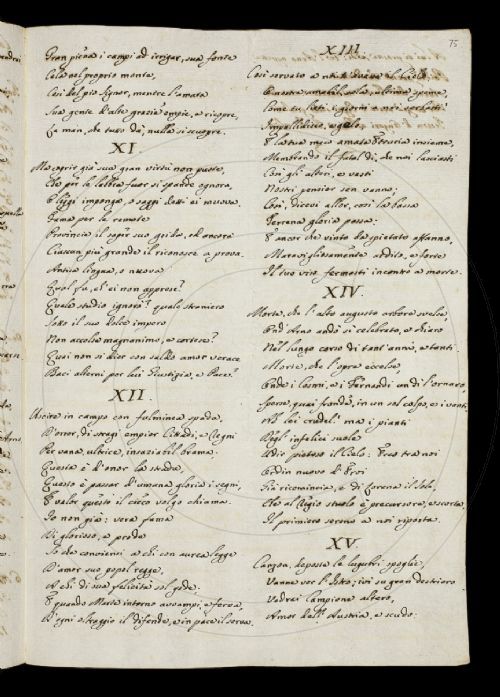 75
Gran piena i campi ad irrigar, sua fonte
Cela nel proprio monte,
Così del pio Signor, mentre l'amata
Sua gente d'alte grazie empie, e ricopre,
La man, che tutto dà, nulla si scuopre.
XI.
Ma coprir già sua gran virtù non puote,
Che per le labbra fuor si sparge ognora,
O leggi imponga, o saggi detti ei muova.
Fama per le remote
Provincie il sopr' suo guida, ed ancora
Ciascun più grande il riconosce a prova.
Antica lingua, o nuova
Qual fu, ch' ei non apprese?
Quale studio ignorò? quale straniero
Sotto il suo dolce impero
Non accolse magnanimo, e cortese?
Quai non si dier con saldo amor verace
Baci alterni per lui Giustizia, e Pace?
XII.
Uscire in campo con fulminea spada,
D'orror, di stragi empier Cittadi, e Regni
Per vana, ultrice, insaziabil brama:
Questa è d'onor la strada,
Questo è passar d'umana gloria i segni,
E valor questo il cieco volgo chiama.
Io non già: vera fama
Di glorioso, e prode
So che conviensi a chi con aurea legge
D'amor suo popol regge,
E chi di sua felicità sol gode;
E quando Marte intorno avvampi, e ferva,
D'ogni oltraggio il difende, e in pace il serva.
XIII.
Così serbato a noi t'avesse il Cielo
O nostra amabil, sola, ultima spene,
Come tu lieti i giorni a noi serbasti!
Impallidisco, e gelo,
E la tua meco amata Etruria insieme,
Membrando il fatal dì, che noi lasciasti
Con gli alti, e vasti
Nostri pensier sen vanno;
Così, dicevi allor, così la bassa
Terrena gloria passa:
E ancor che vinto da spietato affanno,
Maravigliosamente ardito, e forte
Il tuo viso fermasti incontro a morte.
XIV.
Morte, che l'alto augusto arbore svelse,
Ond' Arno andò sì celebrato, e chiaro
Nel lungo corso di tant' anni, e tanti.
Morte, che l'opre eccelse,
Onde i Cosmi, e i Fernandi un dì l'ornaro,
Sperse, quai frondi, in un sol colpo, e i vanti,
Ah lei crudel! ma i pianti
Degl' infelici suole
Udir pietoso il Cielo: Ecco tra noi
Ordin nuovo d'Eroi
Già ricomincia, e di Lorena il Sole,
Che al Regio stuolo è precursore, e scorta,
Il primiero sereno a noi riporta.
XV.
Canzon, deposte le lugubri spoglie,
Vanne ver l'Istro; ivi su gran destriero
Vedrai Campione altero,
Amor dell' Austria, e scudo: